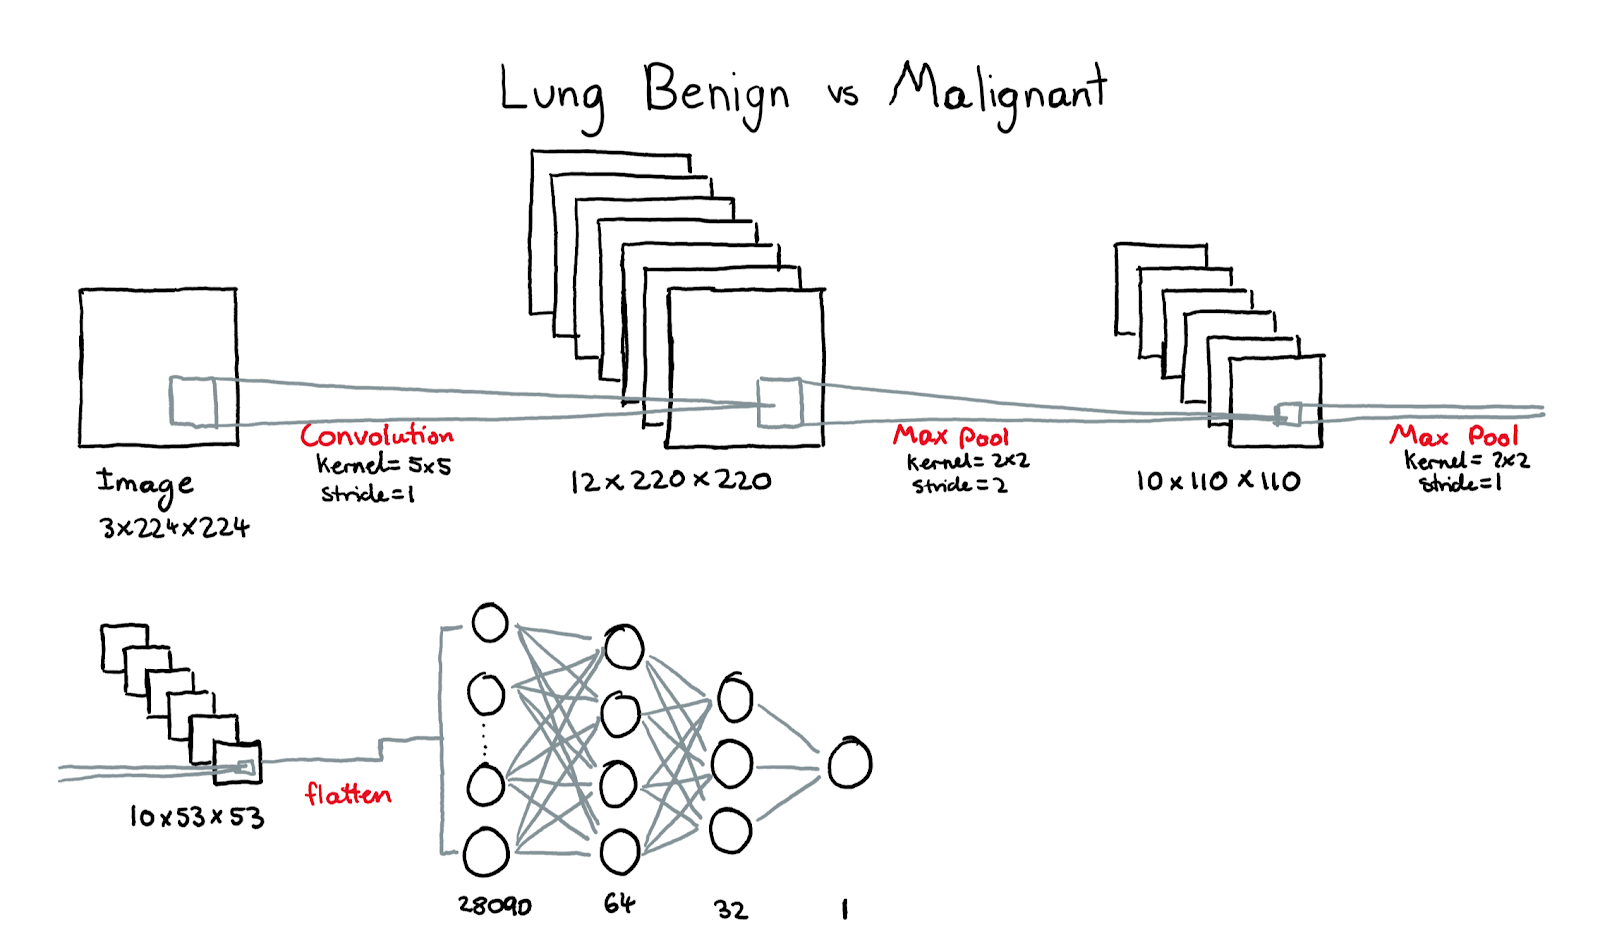 Lung Benign vs Malignant
Image
3x224x224
Convolution
kernel= 5x5
stride=1
12x220x220
Max pool
kernel= 2x2
stride=2
10x110x110
Max Pool
kernel= 2x2
stride=1
10x53x53
flatten
28090
64
32
1